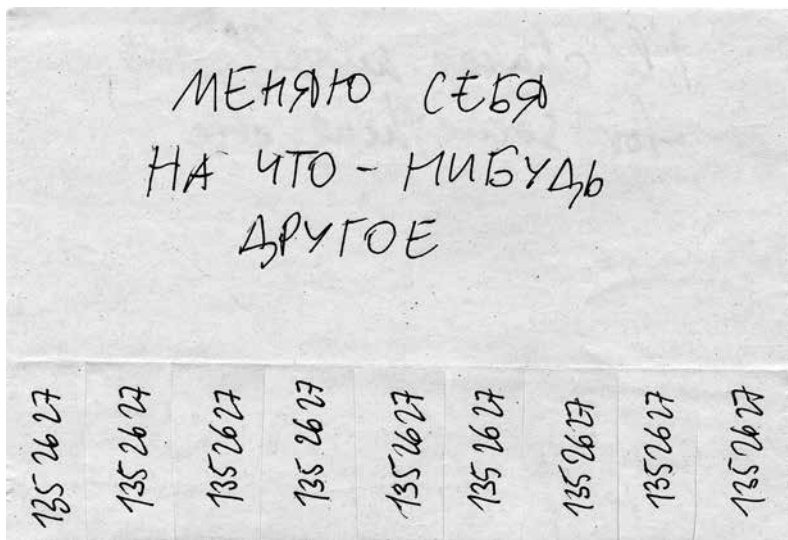 МЕНЯЮ СЕБЯ
НА ЧТО-НИБУДЬ
ДРУГОЕ
135 26 27
135 26 27
135 26 27
135 26 27
135 26 27
135 26 27
135 26 27
135 26 27
135 26 27